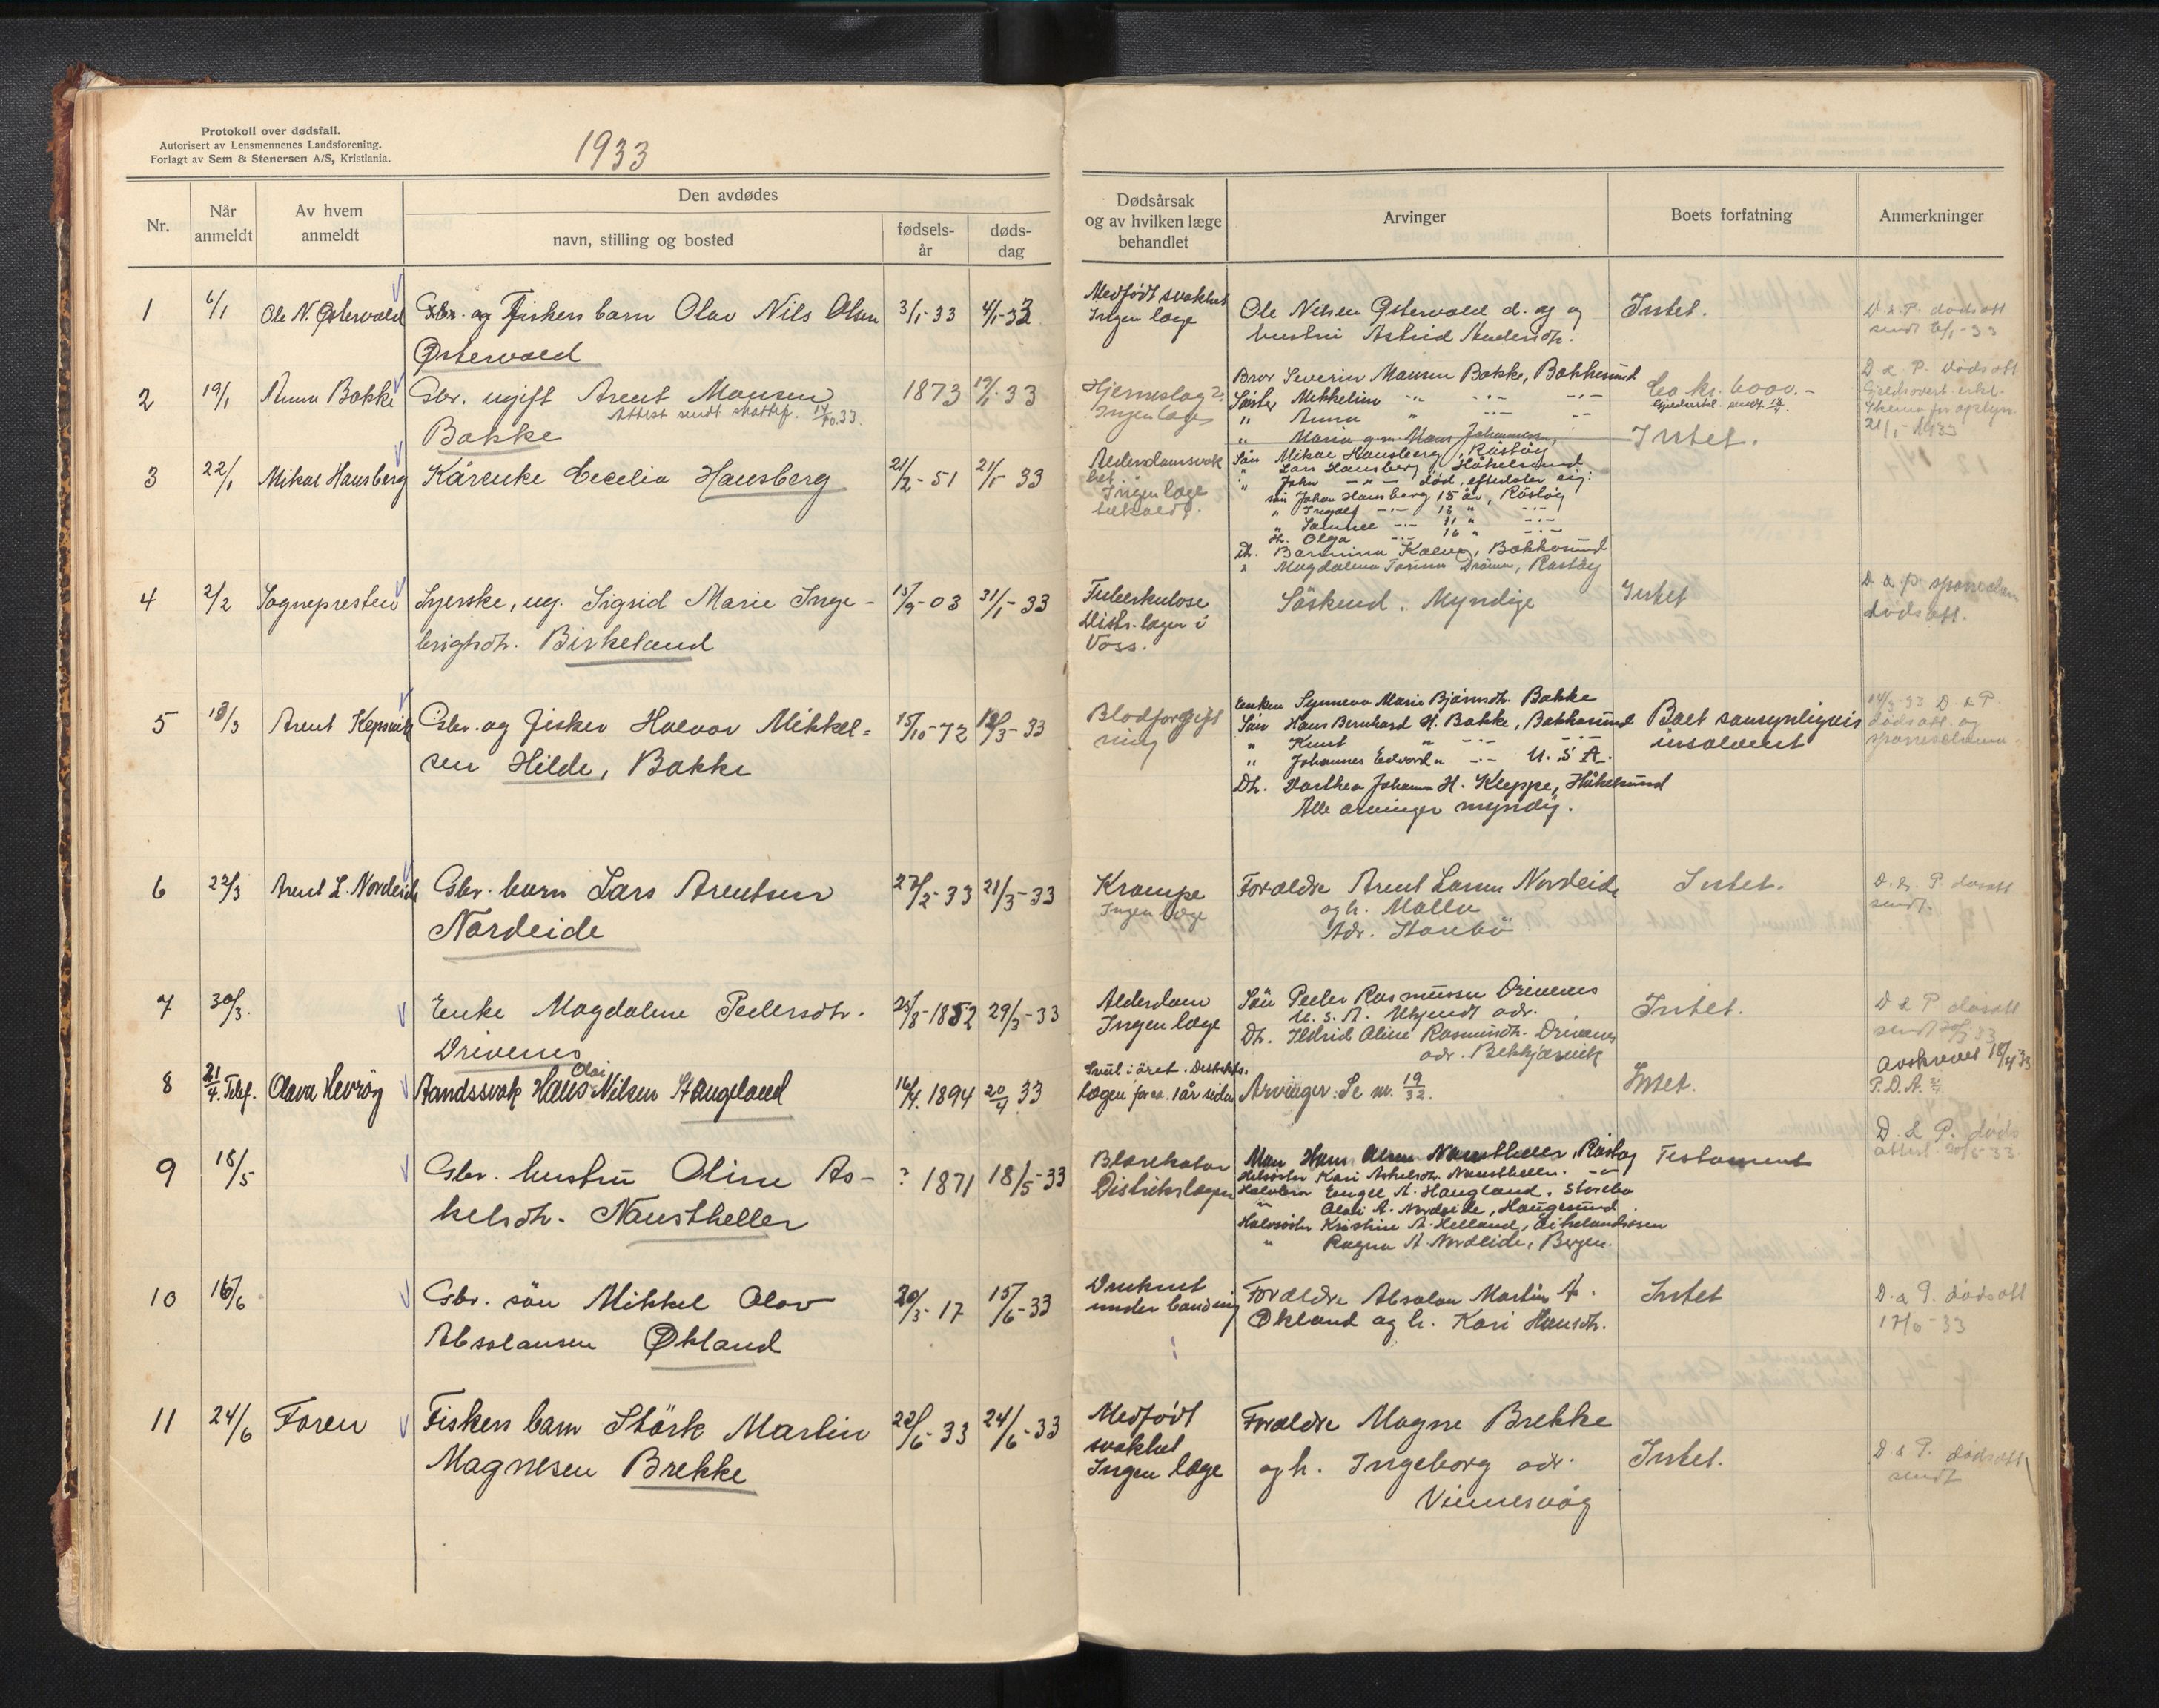 Protokoll over dødsfall.
Autorisert av Lensmennenes Landsforening.
Forlagt av Sem & Stenersen A/S, Kristiania.
1933
Nr.
Når anmeldt
Av hvem anmeldt
Den avdødes
navn, stilling og bosted
fødselsår
dødsdag
Dødsårsak og av hvilken læge behandlet
Arvinger
Boets forfatning
Anmerkninger
1 6/1 Ole N. Østervold Gbr. og Fiskers barn Olav Nils Olsen 3/1-33 4/1-33
Østervold
Medfødt svakhet
Ingen læge
Ole Nilsen Østervold d. og g
hustru Astrid Andersdtr.
Intet.
D. & P. dødsatt
sendt 6/1-33
2 19/1 Anna Bakke Gbr. ugift Arent Monsen 1873 19/1-33
Attest sendt skattef. 17/10.33.
Bakke
Hjerneslag?
Ingen læge
Bror Severin Monsen Bakke, Bakkesund
Søster Mikkeline " -"- -"-
" Anna " -"- -"-
" Maria g.m. Mons Johannessen,
Ca kr. 6000.-
D & P. Dødsatt
21/1-1933
3 22/1 Mikal Hansberg Kårenke Cecelia Hansberg 21/2-51 21/1-33
Alderdomsvak
het
Ingen læge
tilkaldt.
Søn Mikal Hausberg, Rostøy
" Lars Hausberg, Håkelsund
" John -"- død, efterlater sig:
søn Johan Hausberg 15 år, Rostøy
" Ingolf -"- 13 " -"-
" Samuel -"- 11 " -"-
dt. Olga -"- 16 " -"-
Dt. Bakkesund
" Magdalena Rostøy
Intet.
4 2/2 Sognepresten Syerske, ug. Sigrid Marie Inge-
brigtsdtr. Birkeland
15/9-03 31/1-33
Tuberkulose
Distr. lægen i
Voss.
Søskend. Myndige
Intet
D & P. sponsedem
dødsatt.
5 13/3 Arent Kepsvik Gbr. og fisker Halvor Mikkel-
sen Hilde, Bakke
15/10-72 12/3-33
Blodforgift
ning
Enken Synneva Marie Bjørnsdtr. Bakke
Søn Hans Bernhard H. Bakke, Bakkesund
" Knut " -"- -"-
" Johannes Edvard " -"- U. S A.
Dt. Dorthea Johanna H. Kleppe, Håkelsund
Alle arvinger myndig.
Boet sansynligvis
insolvent
14/3-33 D & P
dødsatt. og
6 22/3 Arent L. Nordeide Gbr. barn Lars Arentsen 27/2-33 21/3-33
Nordeide
Krampe
Ingen læge
Foreldre Arent Larsen Nordeide
og h. Malla
Adr. Storebø
Intet.
D. & P. døsatt
sendt.
7 30/3. Enke Magdalene Pedersdtr. 25/8-1852 29/3-33
Drivenes
Alderdom
Ingen læge
Søn Peder Rasmussen Drivenes
U. S. A. Ukjendt adr.
Dt. Ildrid Aline Rasmusdtr. Drivenes
adr. Bekkjarvik
Intet.
D & P døsatt
sendt 30/3 33
8 21/4. Telef. Olava Hevrøy Aandssvak Hans Olai Nilsen Stangeland 16/4. 1894 20/4 33
Svul i øret. Distrikts.
lægen forev. 1 år siden
Arvinger: Se nr. 19/32.
Intet.
Avskrevet 18/4 33
P. D. A.
9 18/5 Gbr. hustru Oline As-
kelsdtr. Naustheller
? 1871 18/5-33
Blærekatar
Distriktslægen
Man Hans Olsen Naustheller, Rostøy
Helsøster Kari Askelsdtr. Naustheller. -"-
Halvbror Engel A. Haugland, Storebø
" Olai A. Nordeide, Haugesund
Halvsøster Kristine A. Helland, Eikelandsosen
" Ragna A. Nordeide, Bergen.
Testament
D. & P. døds
attest. 20/5-33
10 16/6 Gbr. søn Mikkel Olav
Absalonsen Økland
20/3-17 15/6-33
Druknet
under bading
Foreldre Absalon Martin A.
Økland og h. Kari Hansdtr.
Intet
D. & P. dødsatt
17/6-33
11 24/6 Faren Fiskers barn Størk Martin
Magnesen Brekke
22/6-33 24/6-33
Medfødt
svakhet
Ingen læge
Foreldre Magne Brekke
og h. Ingeborg adr.
Vinnesvåg
Intet.
D. & P. dødsatt
sendt